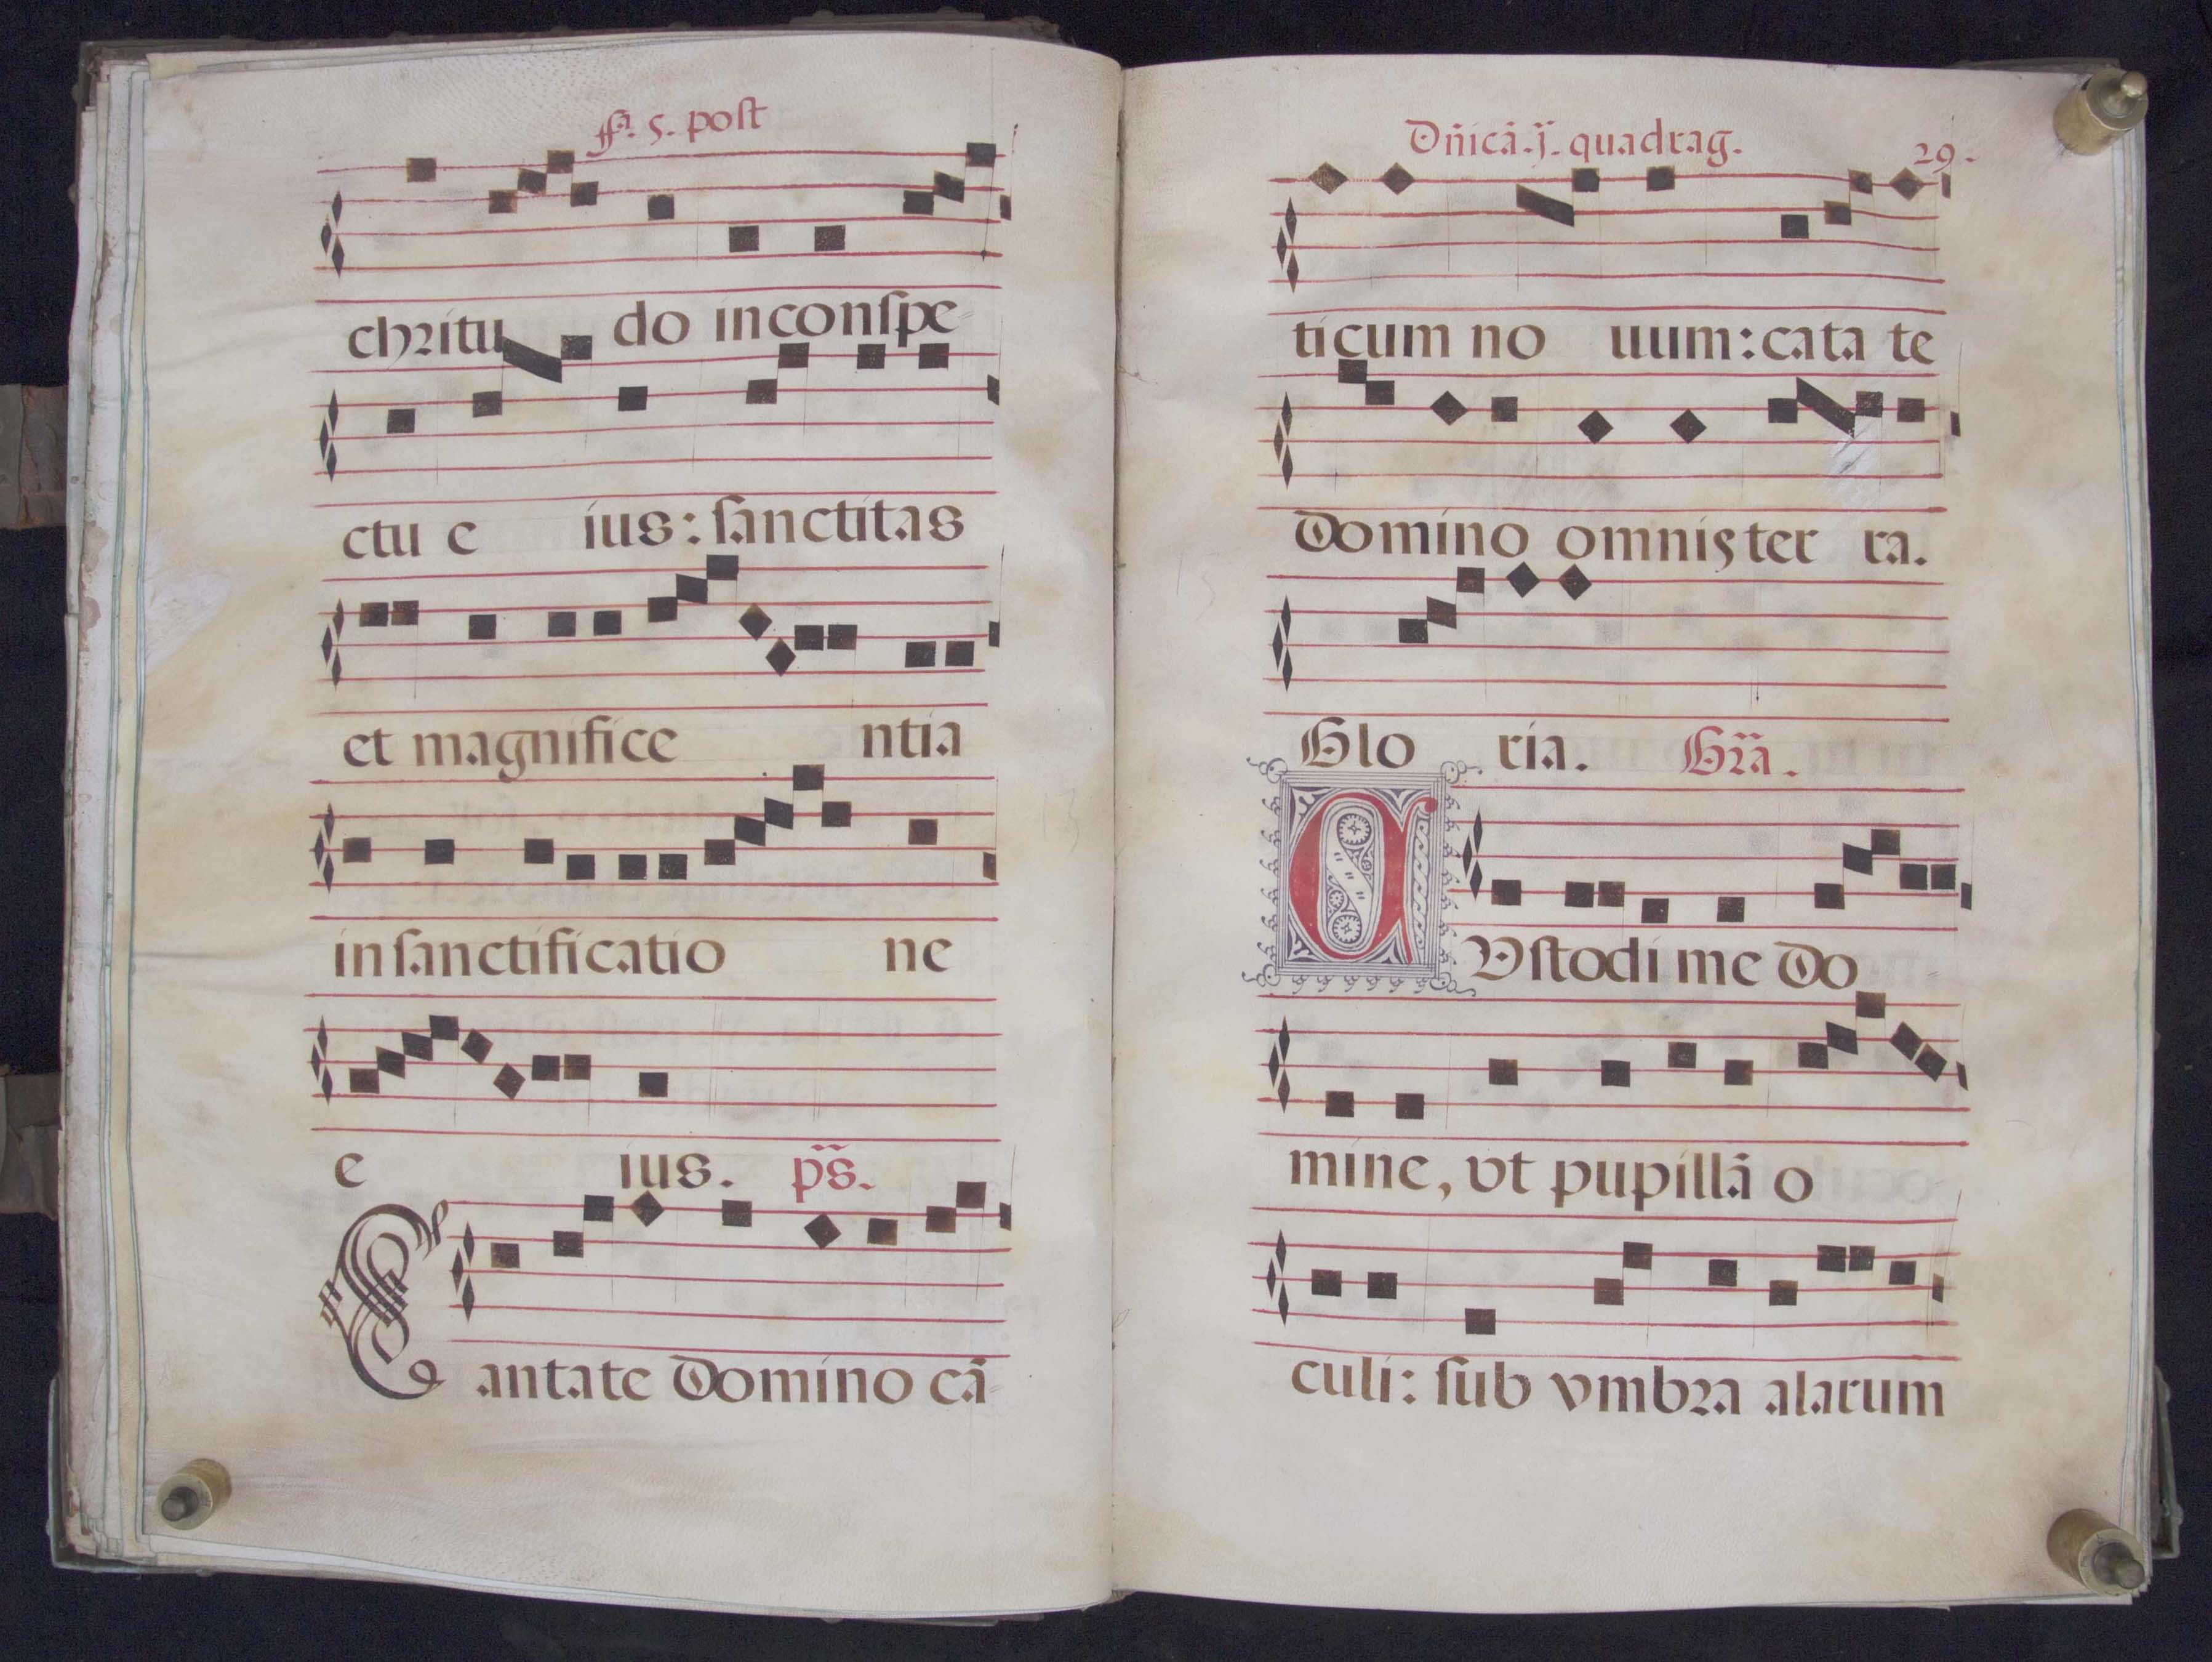 fſa. 5. poſt
chritu do inconſpe-
ctu e ius: ſanctitas
et magnifice ntia
in ſanctificatio ne
e ius. p̃s.
Cantate Domino cã-
Dñicã.j. quadrag. 29.
ticum no uum: cata te
Domino omnis ter ra.
Glo ria. Gr̃a.
CVſtodi me Do
mine, vt pupillã o
culi: ſub vmbra alarum